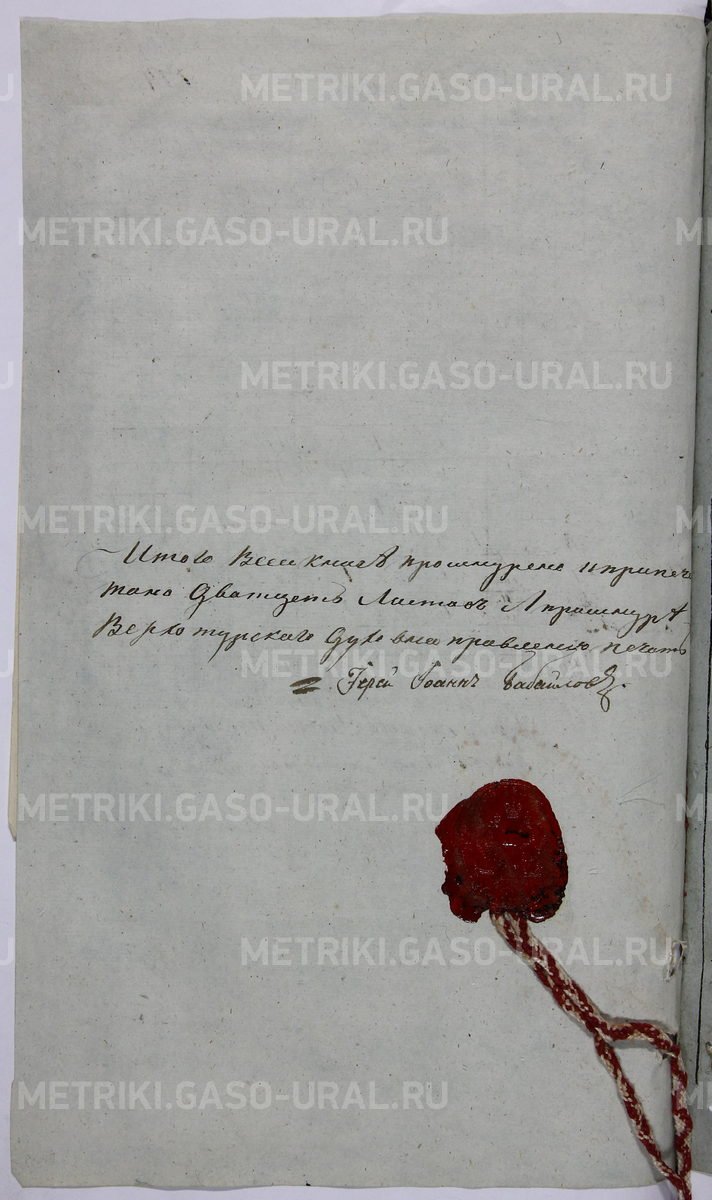 METRIKI.GASO-URAL.RU
METRIKI.GASO-URAL.RU
METRIKI.GASO-URAL.RU
METRIKI.GASO-URAL.RU
Итого Всеи книгѣ прошнурено и припече
тано Дватцеть Листовъ
Верхотурскаго правления печать
Іерей Іоаннъ
METRIKI.GASO-URAL.RU
METRIKI.GASO-URAL.RU
METRIKI.GASO-URAL.RU
METRIKI.GASO-URAL.RU